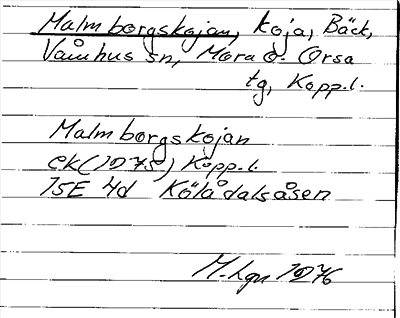 Malmborgskojan, koja, Bäck,
Våmhus sn, Mora o. Orsa
tg, Kopp.l.
Malmborgskojan
ek (1975) Kopp.l.
15E 4d Kölådalsåsen
M.Lgn 1976